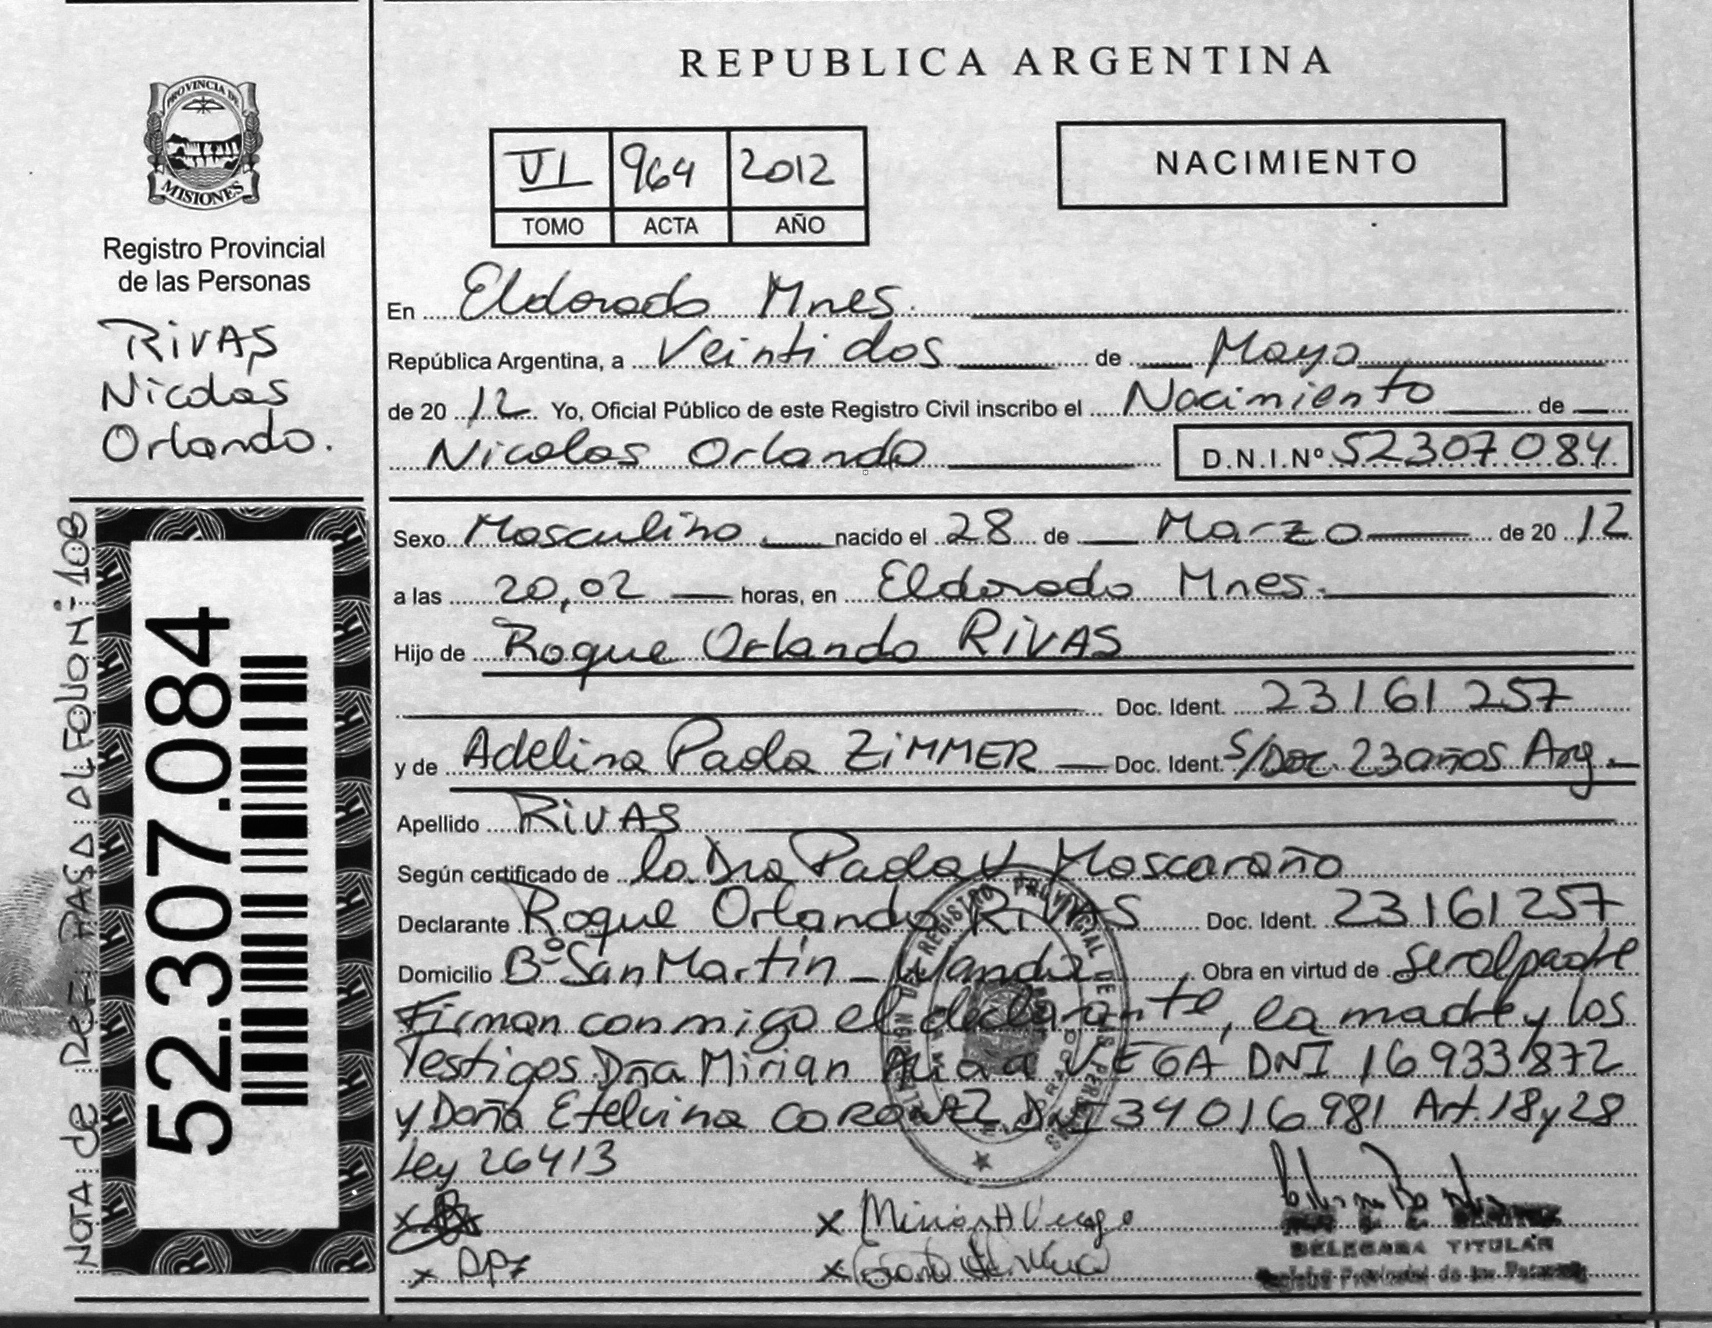 PROVINCIA DE
MISIONES
Registro Provincial
de las Personas
RIVAS
Nicolas
Orlando.
NOTA de REF PASO AL Folio Nº 108
52.307.084
REPUBLICA ARGENTINA
VI 964 2012
TOMO ACTA AÑO
NACIMIENTO
En Eldorado Mnes.
República Argentina, a Veinti dos de Mayo
de 20 12 Yo, Oficial Público de este Registro Civil inscribo el Nacimiento de
Nicolas Orlando D.N.I.Nº 52307084
Sexo Masculino nacido el 28 de Marzo de 20 12
a las 20,02 horas, en Eldorado Mnes.
Hijo de Roque Orlando RIVAS
Doc. Ident. 23161257
y de Adelina Paola ZIMMER Doc. Ident. S/Doc. 23años Arg.
Apellido RIVAS
Según certificado de la Dra Paola V Moscaraño
Declarante Roque Orlando RIVAS Doc. Ident. 23161257
Domicilio Bº San Martín - Wanda Obra en virtud de ser el padre
Firman con migo el declarante, la madre y los
Testigos Dña Mirian VEGA DNI 16933872
y Doña Etelvina DNI 34016981 Art. 18 y 28
Ley 26413
x x Mirian A Vega
x APZ x
DELEGADA TITULAR
Registro Provincial de las Personas